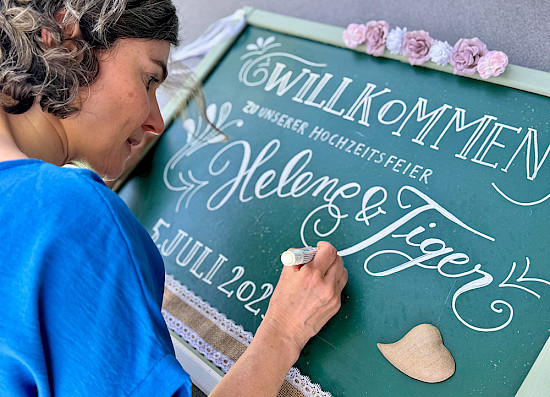 WILLKOMMEN
ZU UNSERER HOCHZEITSFEIER
Helene & Tiger
5. JULI